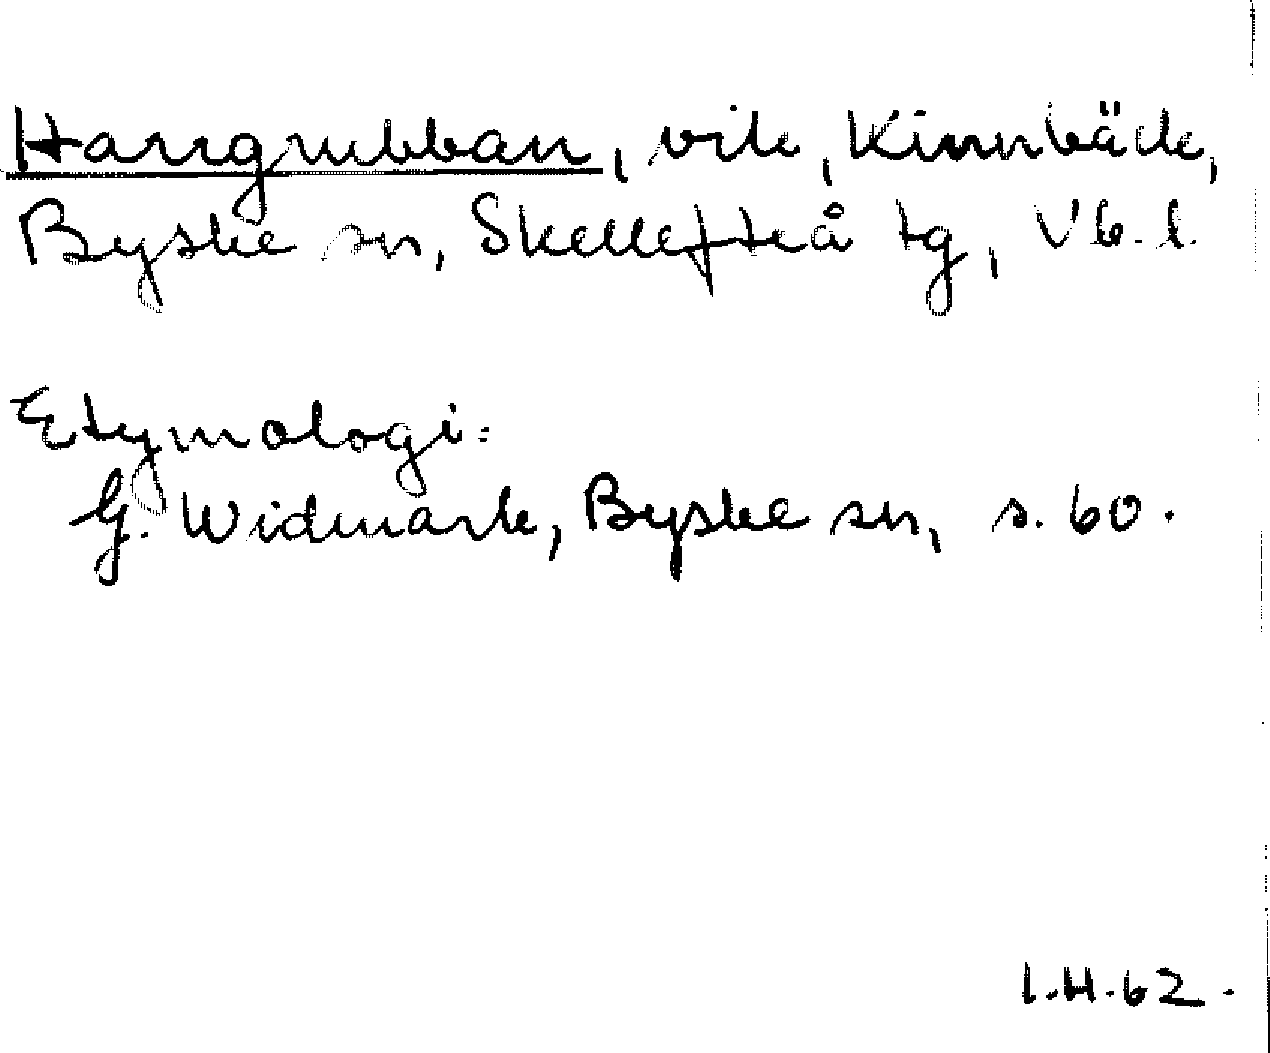 Harrgrubban, vik, Kinnbäck,
Byske sn, Skellefteå tg, Vb. l.
Etymologi:
G. Widmark, Byske sn, s. 60.
I.H.62.